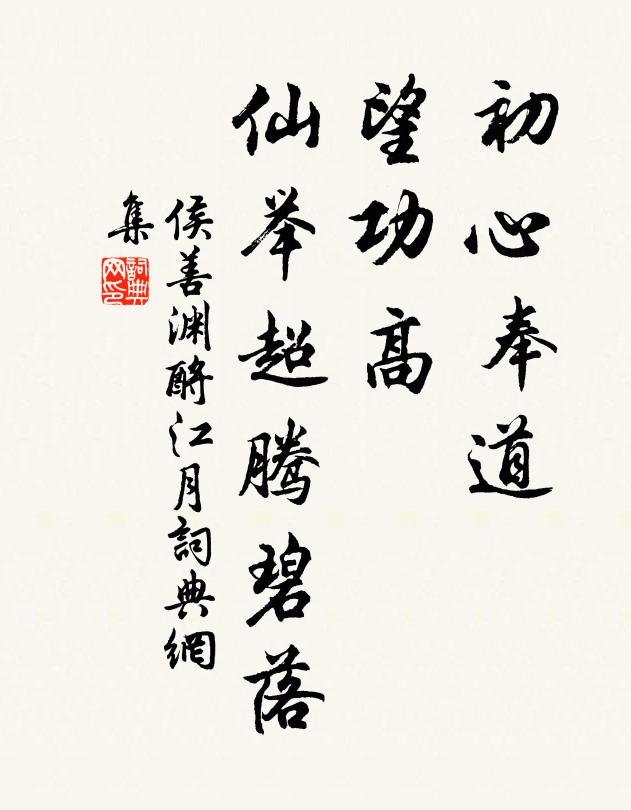 初心奉道
望功高
仙举超腾碧落
侯善渊酹江月詞典網
集
詞典
网印